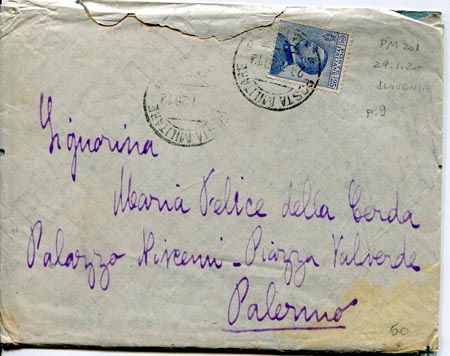 POSTE ITALIANE
POSTA MILITARE
POSTA MILITARE
PM 201
SLOVENIA
p. 9
Signorina
Maria Felice della Cerda
Palazzo Niscemi - Piazza Valverde
Palermo
50